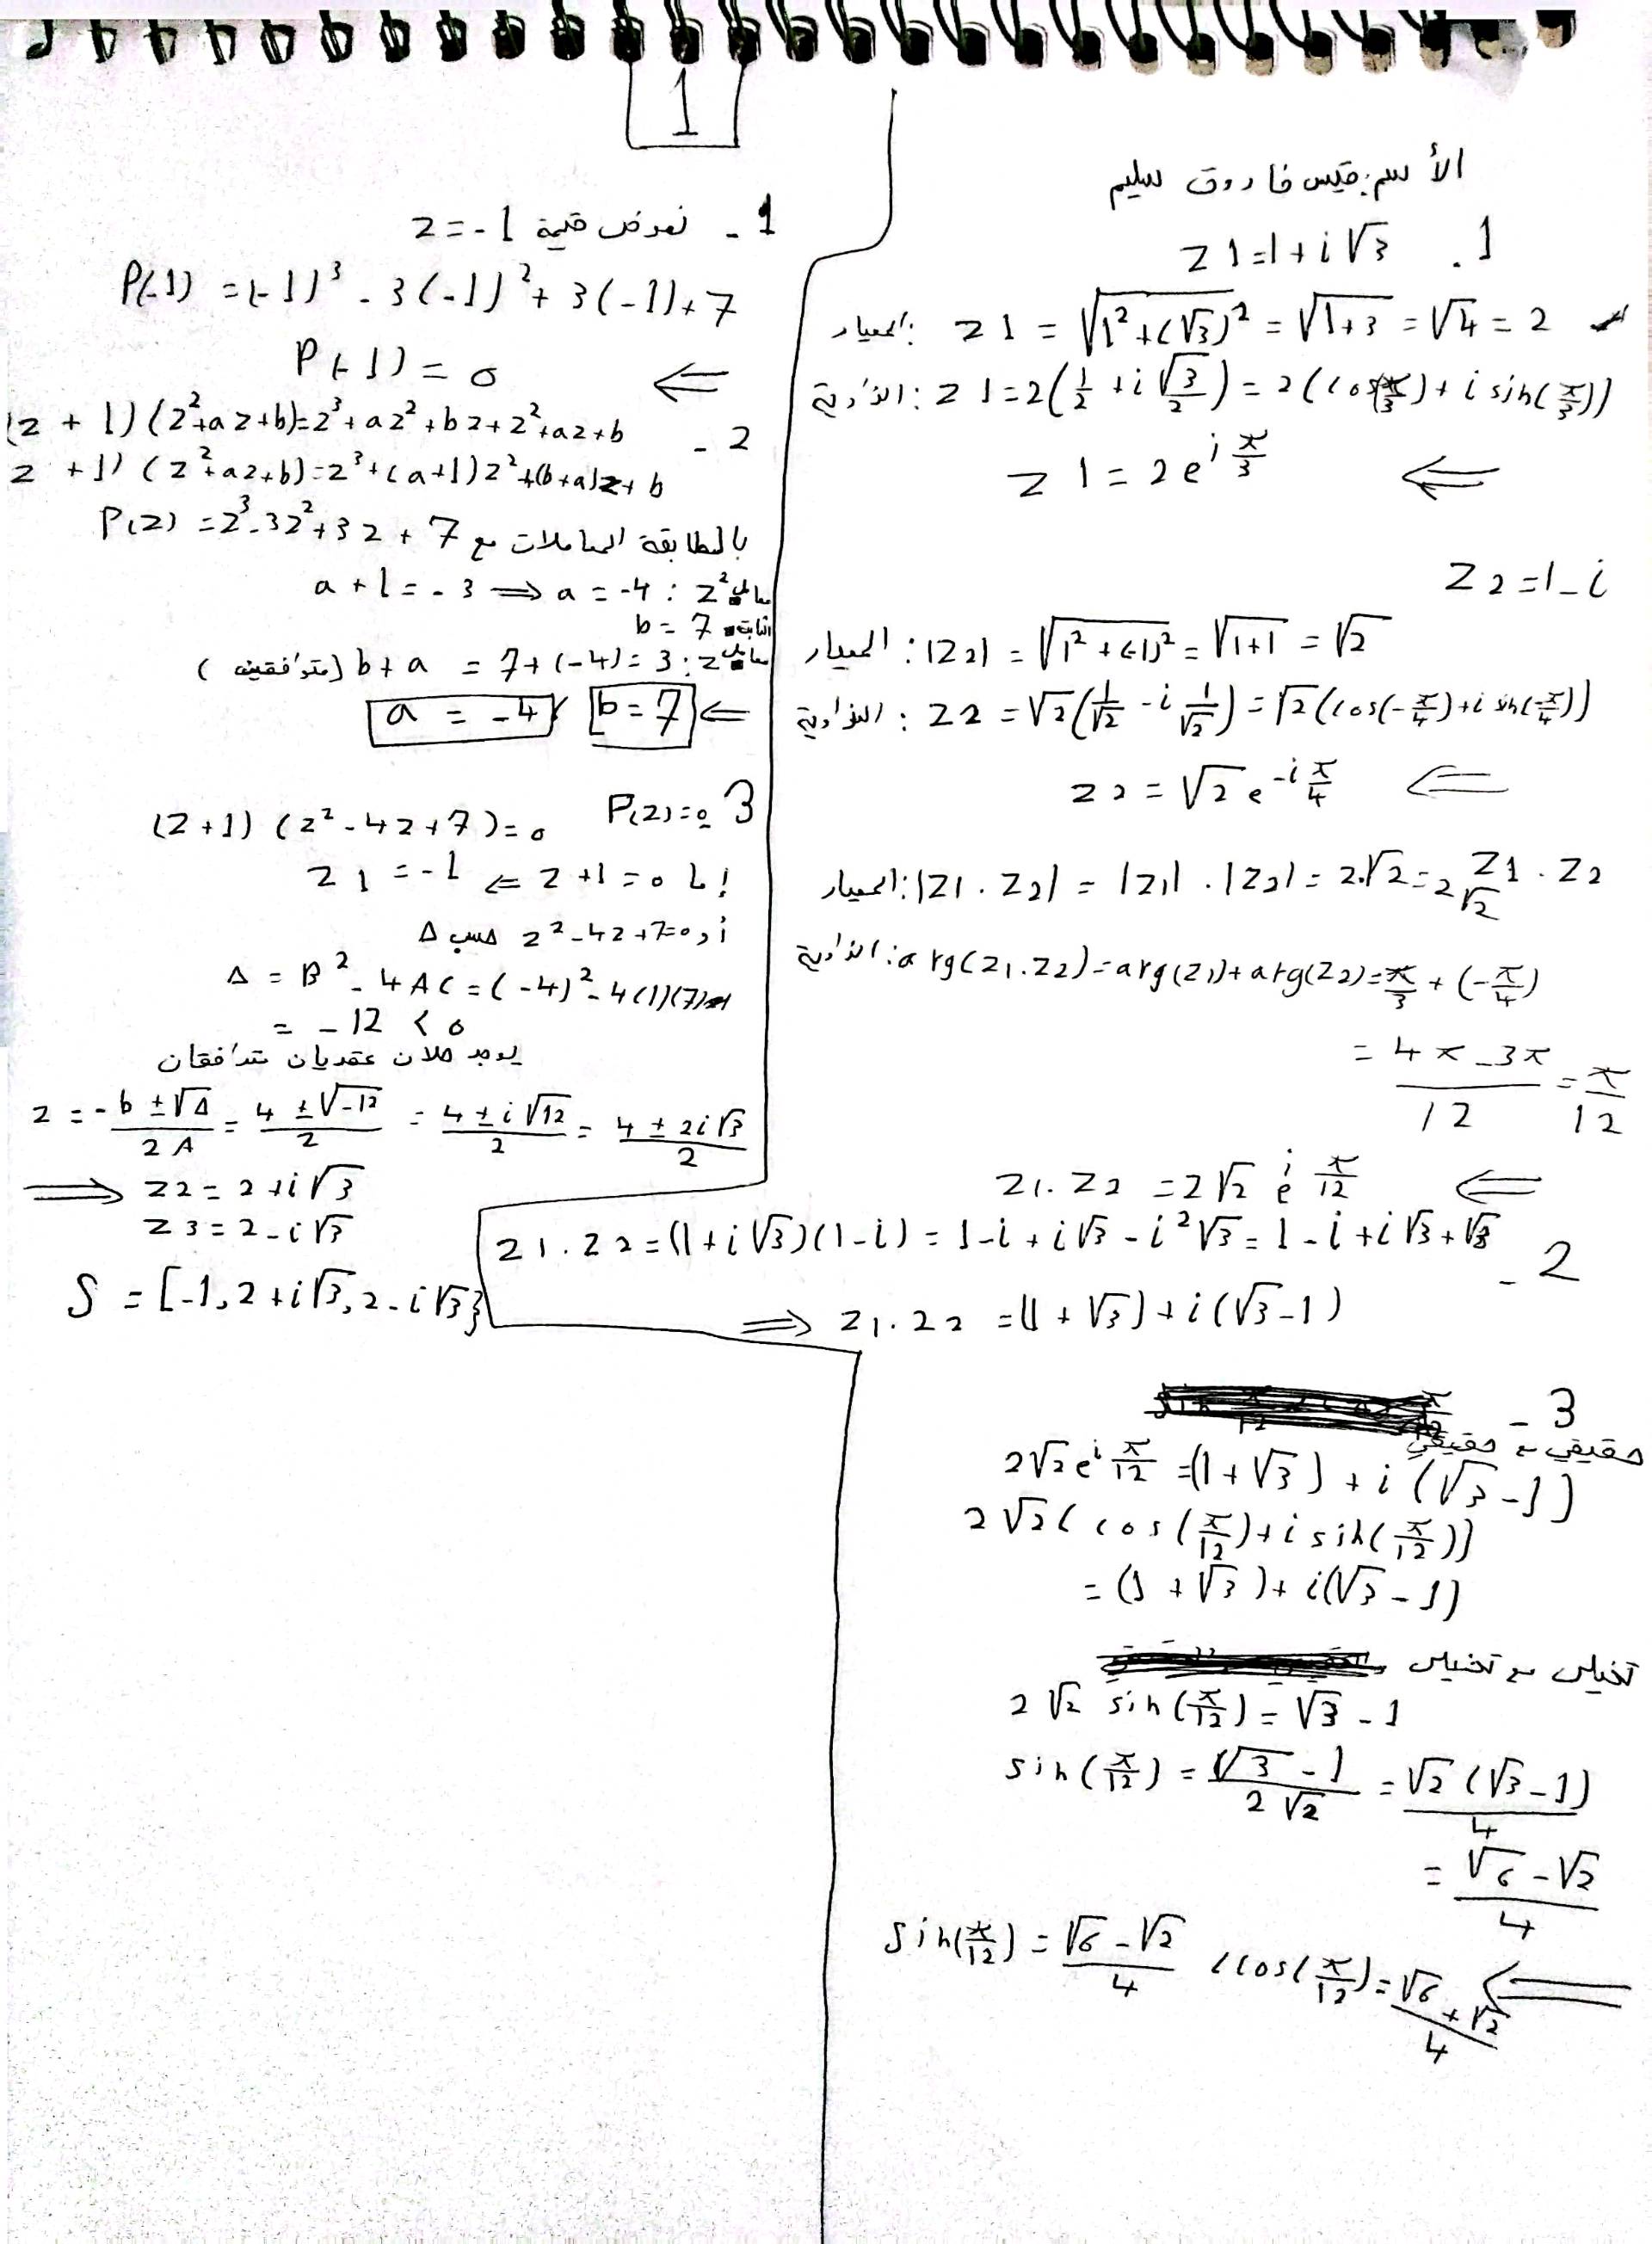 1
الأسم: قيس فاروق سليم
1. z1=1+i√3
المعيار: z1 = √(1²+(√3)²) = √(1+3) = √4 = 2
الزاوية: z1=2(1/2 + i √3/2) = 2(cos(π/3) + i sin(π/3))
⇐ z1 = 2e^(i π/3)
z2 = 1-i
المعيار: |z2| = √(1²+(-1)²) = √(1+1) = √2
الزاوية: z2 = √2(1/√2 - i 1/√2) = √2(cos(-π/4)+i sin(-π/4))
⇐ z2 = √2 e^(-i π/4)
z1 . z2
المعيار: |z1 . z2| = |z1| . |z2| = 2.√2 = 2√2
الزاوية: arg(z1.z2) = arg(z1) + arg(z2) = π/3 + (-π/4)
= (4π-3π)/12 = π/12
⇐ z1. z2 = 2√2 e^(i π/12)
2 - z1 . z2 = (1+i√3)(1-i) = 1-i+i√3-i²√3 = 1-i+i√3+√3
⇒ z1. z2 = (1+√3)+i(√3-1)
3 -
حقيقي مع حقيقي
2√2 e^(i π/12) = (1+√3) + i(√3-1)
2√2(cos(π/12)+i sin(π/12))
= (1+√3)+i(√3-1)
تخيلي مع تخيلي
2√2 sin(π/12) = √3 - 1
sin(π/12) = (√3-1)/(2√2) = √2(√3-1)/4
= (√6-√2)/4
⇐ sin(π/12) = (√6-√2)/4 ، cos(π/12) = (√6+√2)/4
1 - نعوض قيمة z=-1
P(-1) = (-1)³ - 3(-1)² + 3(-1) + 7
⇐ P(-1) = 0
2 - (z + 1)(z²+az+b)=z³+az²+bz+z²+az+b
z + 1) (z²+az+b)=z³+(a+1)z²+(b+a)z+b
بالمطابقة المعاملات مع P(z) = z³-3z²+3z+7
معامل z² : a+1 = -3 ⇒ a = -4
الثابت b = 7
معامل z : b+a = 7+(-4) = 3 (متوافقين)
⇐ b=7 ، a = -4
3 P(z)=0 (z+1) (z²-4z+7)=0
إما z+1=0 ⇐ z1 = -1
أو z²-4z+7=0 حسب Δ
Δ = B² - 4AC = (-4)² - 4(1)(7)
= -12 < 0
يوجد حلان عقديان مترافقان
z = (-b±√Δ)/2A = (4±√-12)/2 = (4±i√12)/2 = (4±2i√3)/2
⇒ z2 = 2+i√3
z3 = 2-i√3
S = [-1, 2+i√3, 2-i√3}